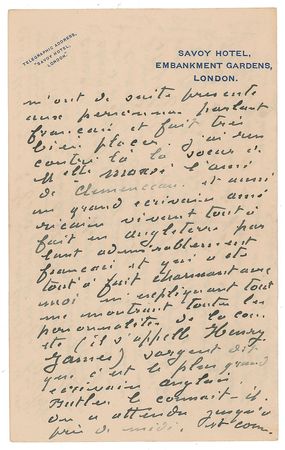 TELEGRAPHIC ADDRESS,
"SAVOY HOTEL,
LONDON."
SAVOY HOTEL,
EMBANKMENT GARDENS,
LONDON.
m'ont de suite présenté
aux personnes parlant
français et fait très
bien placer. J'ai ren
contré là la soeur de
Melle l'ami
de Clemenceau. et aussi
un grand écrivain amé
ricain vivant tout à
fait en angleterre par
lant admirablement
français et qui a été
tout à fait charmant avec
moi m'expliquant tout
me montrant toutes les
personnalités de la
(il s'appelle Henry
James) Sargent dit
que c'est le plus grand
écrivain anglais.
Butler le connait-il.
on a attendu jusqu'à
près de midi.